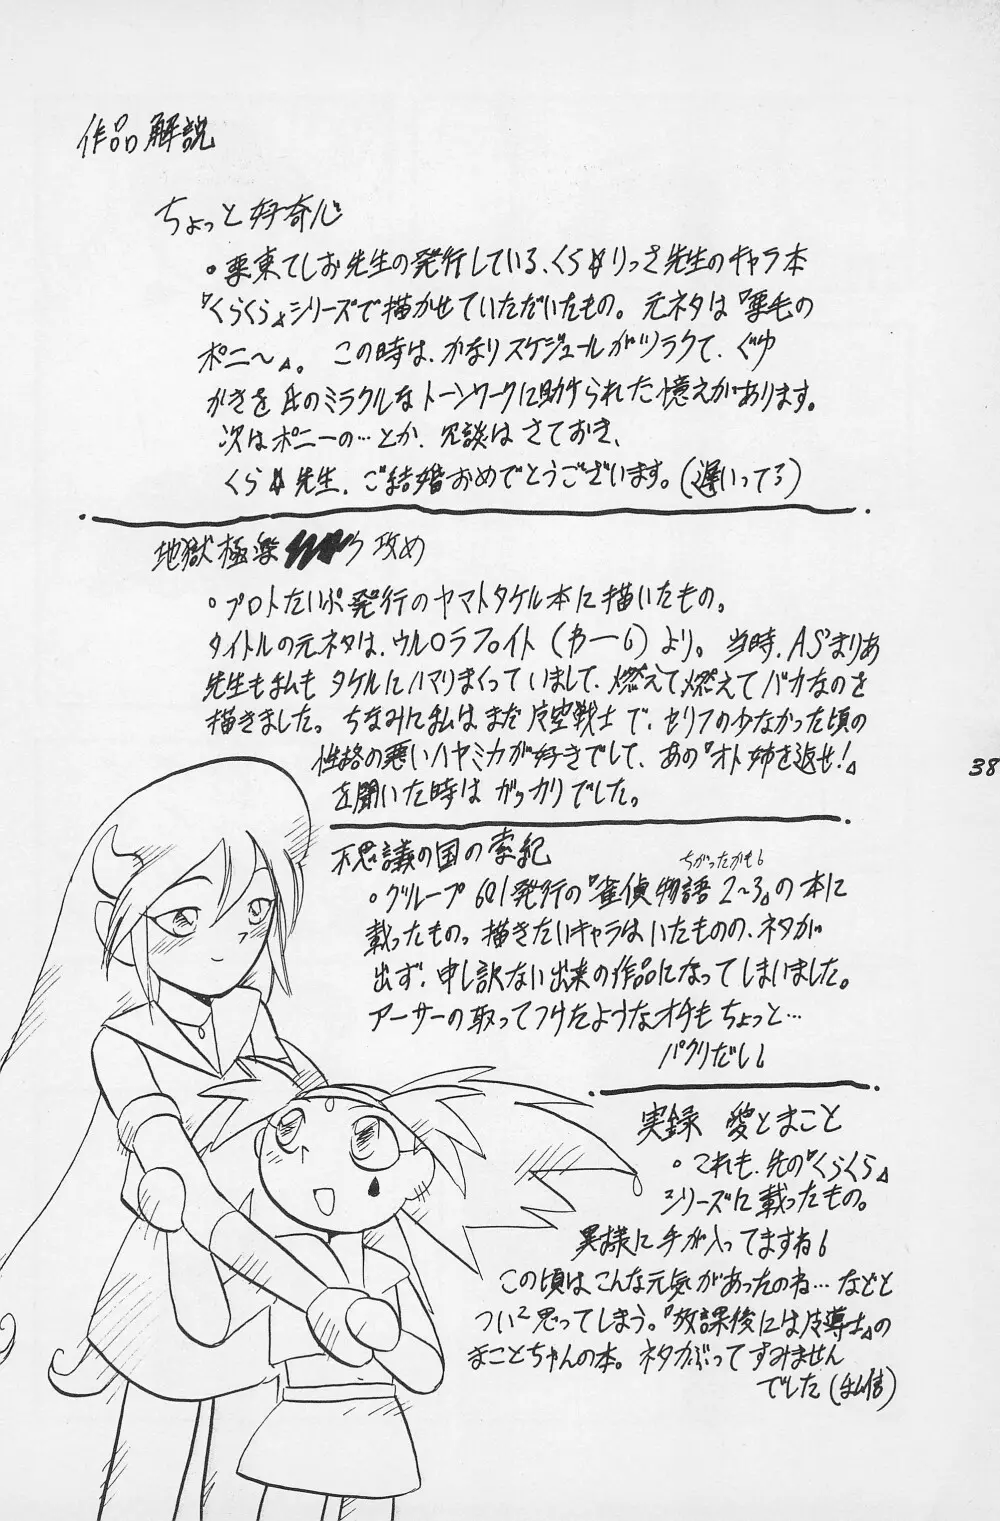 作品解説
ちょっと好奇心
。栗東てしお先生の発行している、くら☆りっさ先生のキャラ本
『くらくら』シリーズで描かせていただいたもの。元ネタは『栗毛の
ポニ〜』。この時は、かなりスケジュールがツラクて、ぐゆ
がきを氏のミラクルなトーンワークに助けられた憶えがあります。
次はポニーの…とか、冗談はさておき、
くら☆先生、ご結婚おめでとうございます。(遅いって3)
地獄極楽 攻め
。プロトたいぷ発行のヤマトタケル本に描いたもの。
タイトルの元ネタは、ウル○ラファイト(カー6)より。当時、AS'まりあ
先生も私もタケルにハマりまくっていまして、燃えて燃えてバカなのを
描きました。ちなみに私はまだ 空戦士で、セリフの少なかった頃の
性格の悪いハヤミカが好きでして、あの『オト姉を返せ!』
を聞いた時はガッカリでした。
38
不思議の国の 紀
ちがったかも6
。グループ601発行の『雀偵物語2〜3』の本に
載ったもの。描きたいキャラはいたものの、ネタが
出ず、申し訳ない出来の作品になってしまいました。
アーサーの取ってつけたようなオチもちょっと…
パクリだし6
実録 愛とまこと
。これも、先の『くらくら』
シリーズに載ったもの。
異様に手が入ってますね6
この頃はこんな元気があったのね…などと
つい2思ってしまう。『放課後には 導士』の
まことちゃんの本。ネタかぶってすみません
でした